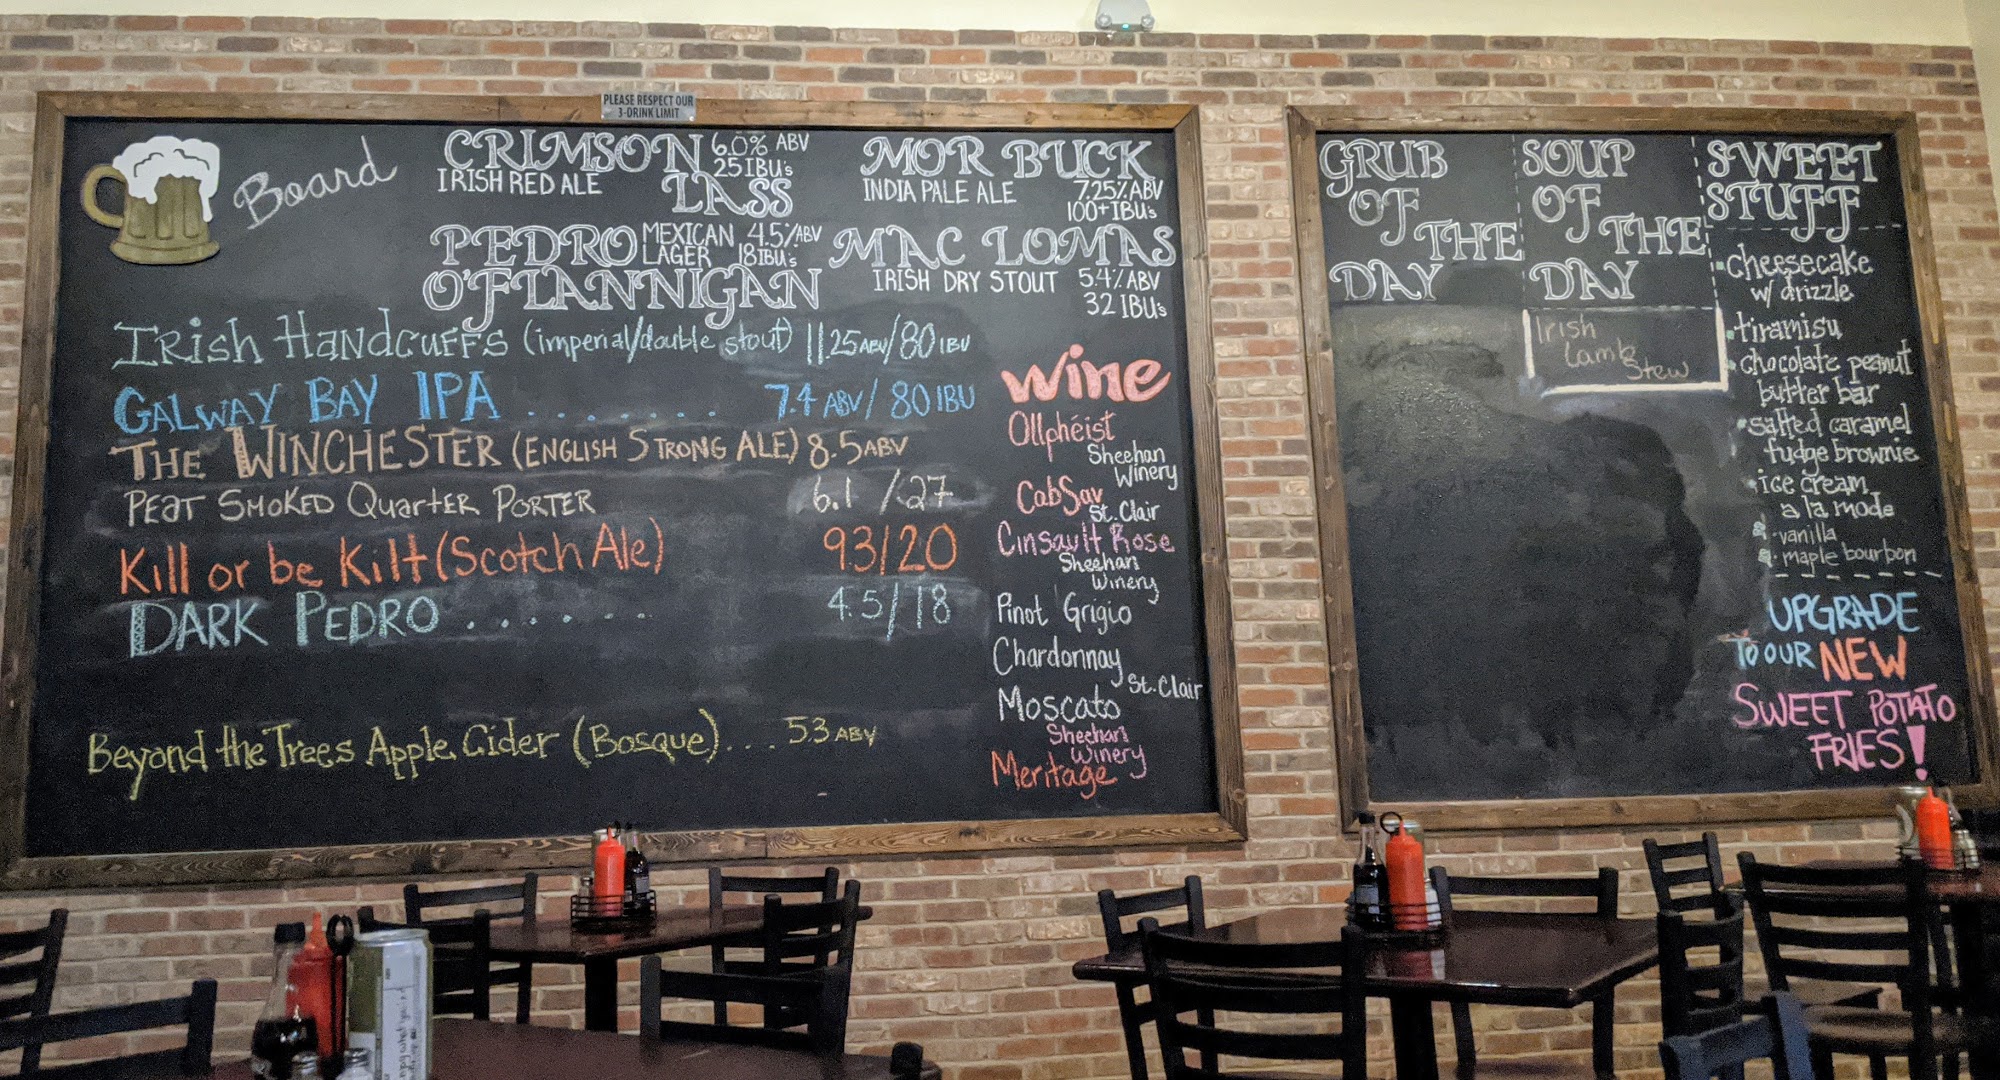 PLEASE RESPECT OUR
3-DRINK LIMIT
Board
CRIMSON
LASS
IRISH RED ALE
6.0% ABV
25 IBU's
MOR BUCK
INDIA PALE ALE
7.25% ABV
100+ IBU's
PEDRO
O'FLANNIGAN
MEXICAN
LAGER
4.5% ABV
18 IBU's
MAC LOMAS
IRISH DRY STOUT
5.4% ABV
32 IBU's
Irish Handcuffs (imperial/double stout) 11.25 ABV/80 IBU
GALWAY BAY IPA . . . . . . . 7.4 ABV/80 IBU
THE WINCHESTER (ENGLISH STRONG ALE) 8.5 ABV
PEAT SMOKED QUARTER PORTER 6.1 /27
Kill or be Kilt (Scotch Ale) 9.3/20
DARK PEDRO . . . . . . . 4.5/18
Beyond the Trees Apple Cider (Bosque)... 5.3 ABV
wine
Ollphéist
Sheehan
Winery
CabSav
St. Clair
Cinsault Rose
Sheehan
Winery
Pinot Grigio
Chardonnay
St. Clair
Moscato
Sheehan
Winery
Meritage
GRUB
OF
THE
DAY
SOUP
OF
THE
DAY
Irish
Lamb
Stew
SWEET
STUFF
• cheesecake
w/ drizzle
• tiramisu
• chocolate peanut
butter bar
• salted caramel
fudge brownie
• ice cream
a la mode
- vanilla
- maple bourbon
UPGRADE
TO OUR NEW
SWEET POTATO
FRIES!